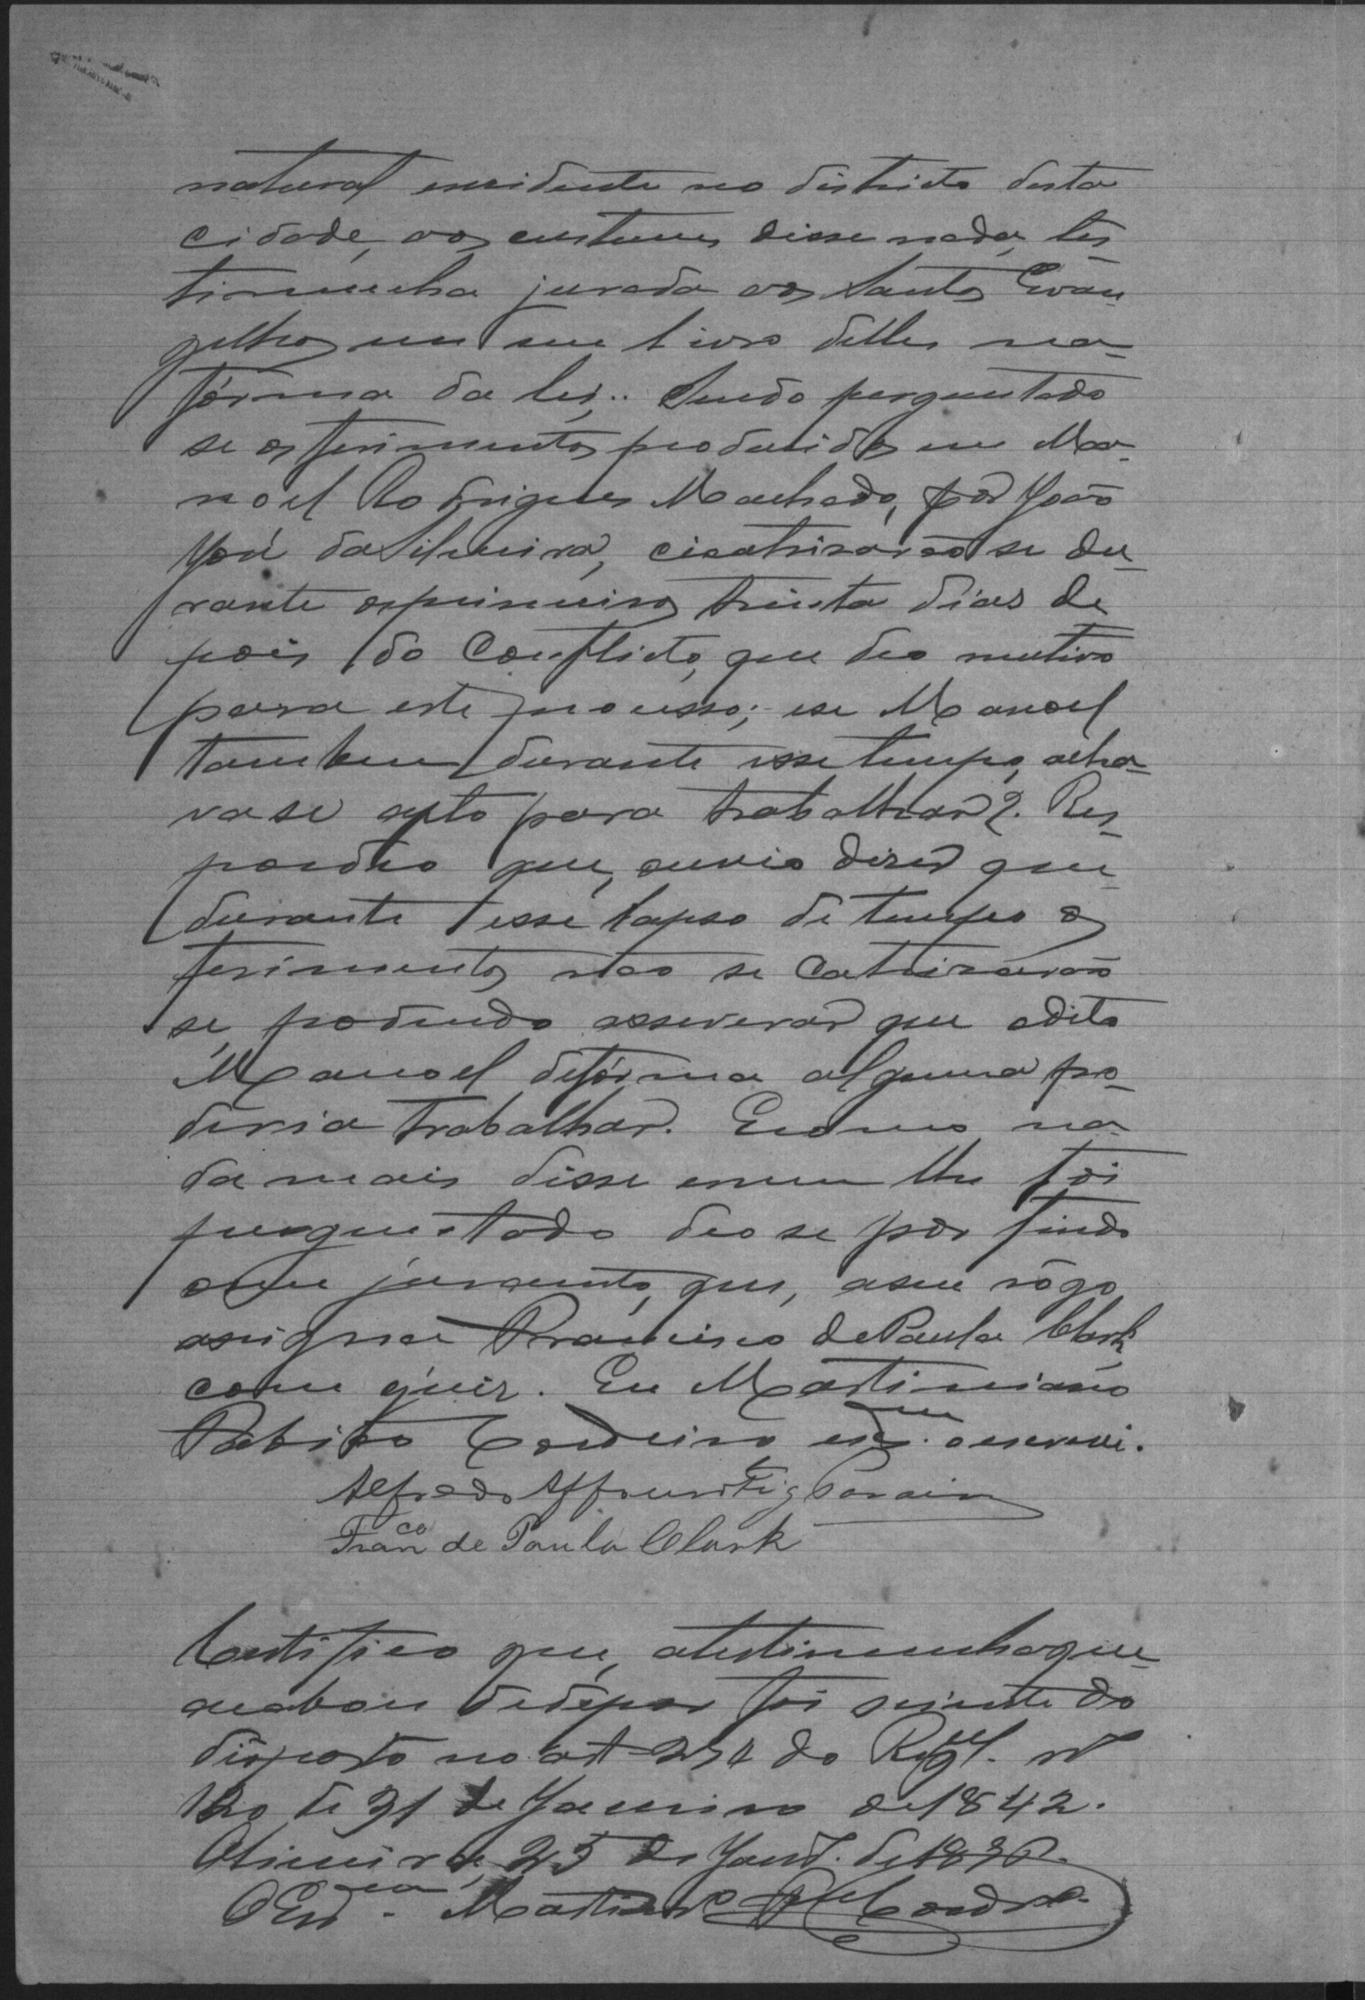 natural e residente no districto desta
cidade, aos custumes disse nada, tes
timunha jurada aos Santos Evan
gelhos em um livro delles na
fórma da lei. Sendo perguntado
se os ferimentos produsidos em Ma
noel Rodrigues Machado, por João
José da Silveira, cicatrisarão se du
rante os primeiros trinta dias de
pois do conflicto, que deo mutivo
para este processo; e se Manoel
tambem durante esse tempo, acha
va se apto para trabalhar? Res
pondeo que, ouvio dizer que
durante esse lapso de tempo os
ferimentos não se catrisarão
se, podendo asseverar que o dito
Manoel de fórma alguma po
deria trabalhar. E como na
da mais disse e nem lhe foi
perguntado deo se por findo
o seu juramento, que, a seu rôgo
assigna Francisco de Paula Clark
com o juiz. Eu Martiniano
Cordeiro o escrevi.
Alfredo
Franco de Paula Clark
Certifico que, a testimunha que
acabou de depor foi sciente do
disposto no art 294 do Regul. nº
120 de 31 de Janeiro de 1842.
25 de Janro. de
O Escram.